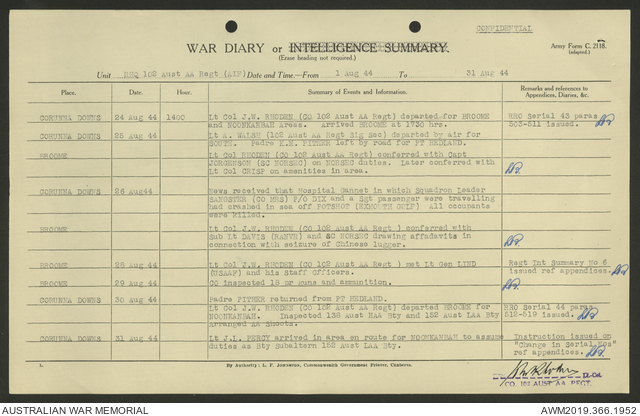 CONFIDENTIAL
WAR DIARY or INTELLIGENCE SUMMARY.
(Erase heading not required.)
Army Form C. 2118.
Unit RHQ 102 Aust AA Regt (AIF) Date and Time.—From 1 Aug 44 To 31 Aug 44
Place. Date. Hour. Summary of Events and Information. Remarks and references to Appendices, Diaries, &c.
CORUNNA DOWNS 24 Aug 44 1400 Lt Col J.W. RHODEN (CO 102 Aust AA Regt) departed for BROOME RRO Serial 43 paras
and NOONKANBAH Areas. Arrived BROOME at 1730 hrs. 503-511 issued.
CORUNNA DOWNS 25 Aug 44 Lt A. WALSH (102 Aust AA Regt Sig Sec) departed by air for
SOUTH. Padre E.H. PITHER left by road for PT HEDLAND.
BROOME Lt Col RHODEN (CO 102 Aust AA Regt) conferred with Capt
JORGENSON (SC NORSEC) on NORSEC duties. Later conferred with
Lt Col CRISP on amenities in area.
CORUNNA DOWNS 26 Aug 44 News received that Hospital Gannet in which Squadron Leader
SANGSTER (CO MRS) P/O DIX and a Sgt passenger were travelling
had crashed in sea off POTSHOT (EXMOUTH GULF) All occupants
were killed.
BROOME Lt Col J.W. RHODEN (CO 102 Aust AA Regt ) conferred with
Sub Lt DAVIS (RANVR) and SC NORSEC drawing affadavits in
connection with seizure of Chinese lugger.
BROOME 28 Aug 44 Lt Col J.W. RHODEN (CO 102 Aust AA Regt ) met Lt Gen LIND Regt Int Summary No 6
(USAAF) and his Staff Officers. issued ref appendices.
BROOME 29 Aug 44 CO inspected 18 pr guns and ammunition.
CORUNNA DOWNS 30 Aug 44 Padre PITHER returned from PT HEDLAND.
Lt Col J.W. RHODEN (CO 102 Aust AA Regt) departed BROOME for RRO Serial 44 paras
NOONKANBAH. Inspected 138 Hat HAA Bty and 152 Aust LAA Bty 512-519 issued.
Arranged AA Shoots.
CORUNNA DOWNS 31 Aug 44 Lt J.L. PERCY arrived in area en route for NOONKANBAH to assume Instruction issued on
duties as Bty Subaltern 152 Aust LAA Bty. "Change in Serial Nos"
ref appendices.
By Authority: L. F. Johnston, Commonwealth Government Printer, Canberra.
Lt-Col
CO. 102 AUST AA. REGT.
AUSTRALIAN WAR MEMORIAL AWM2019.366.1952